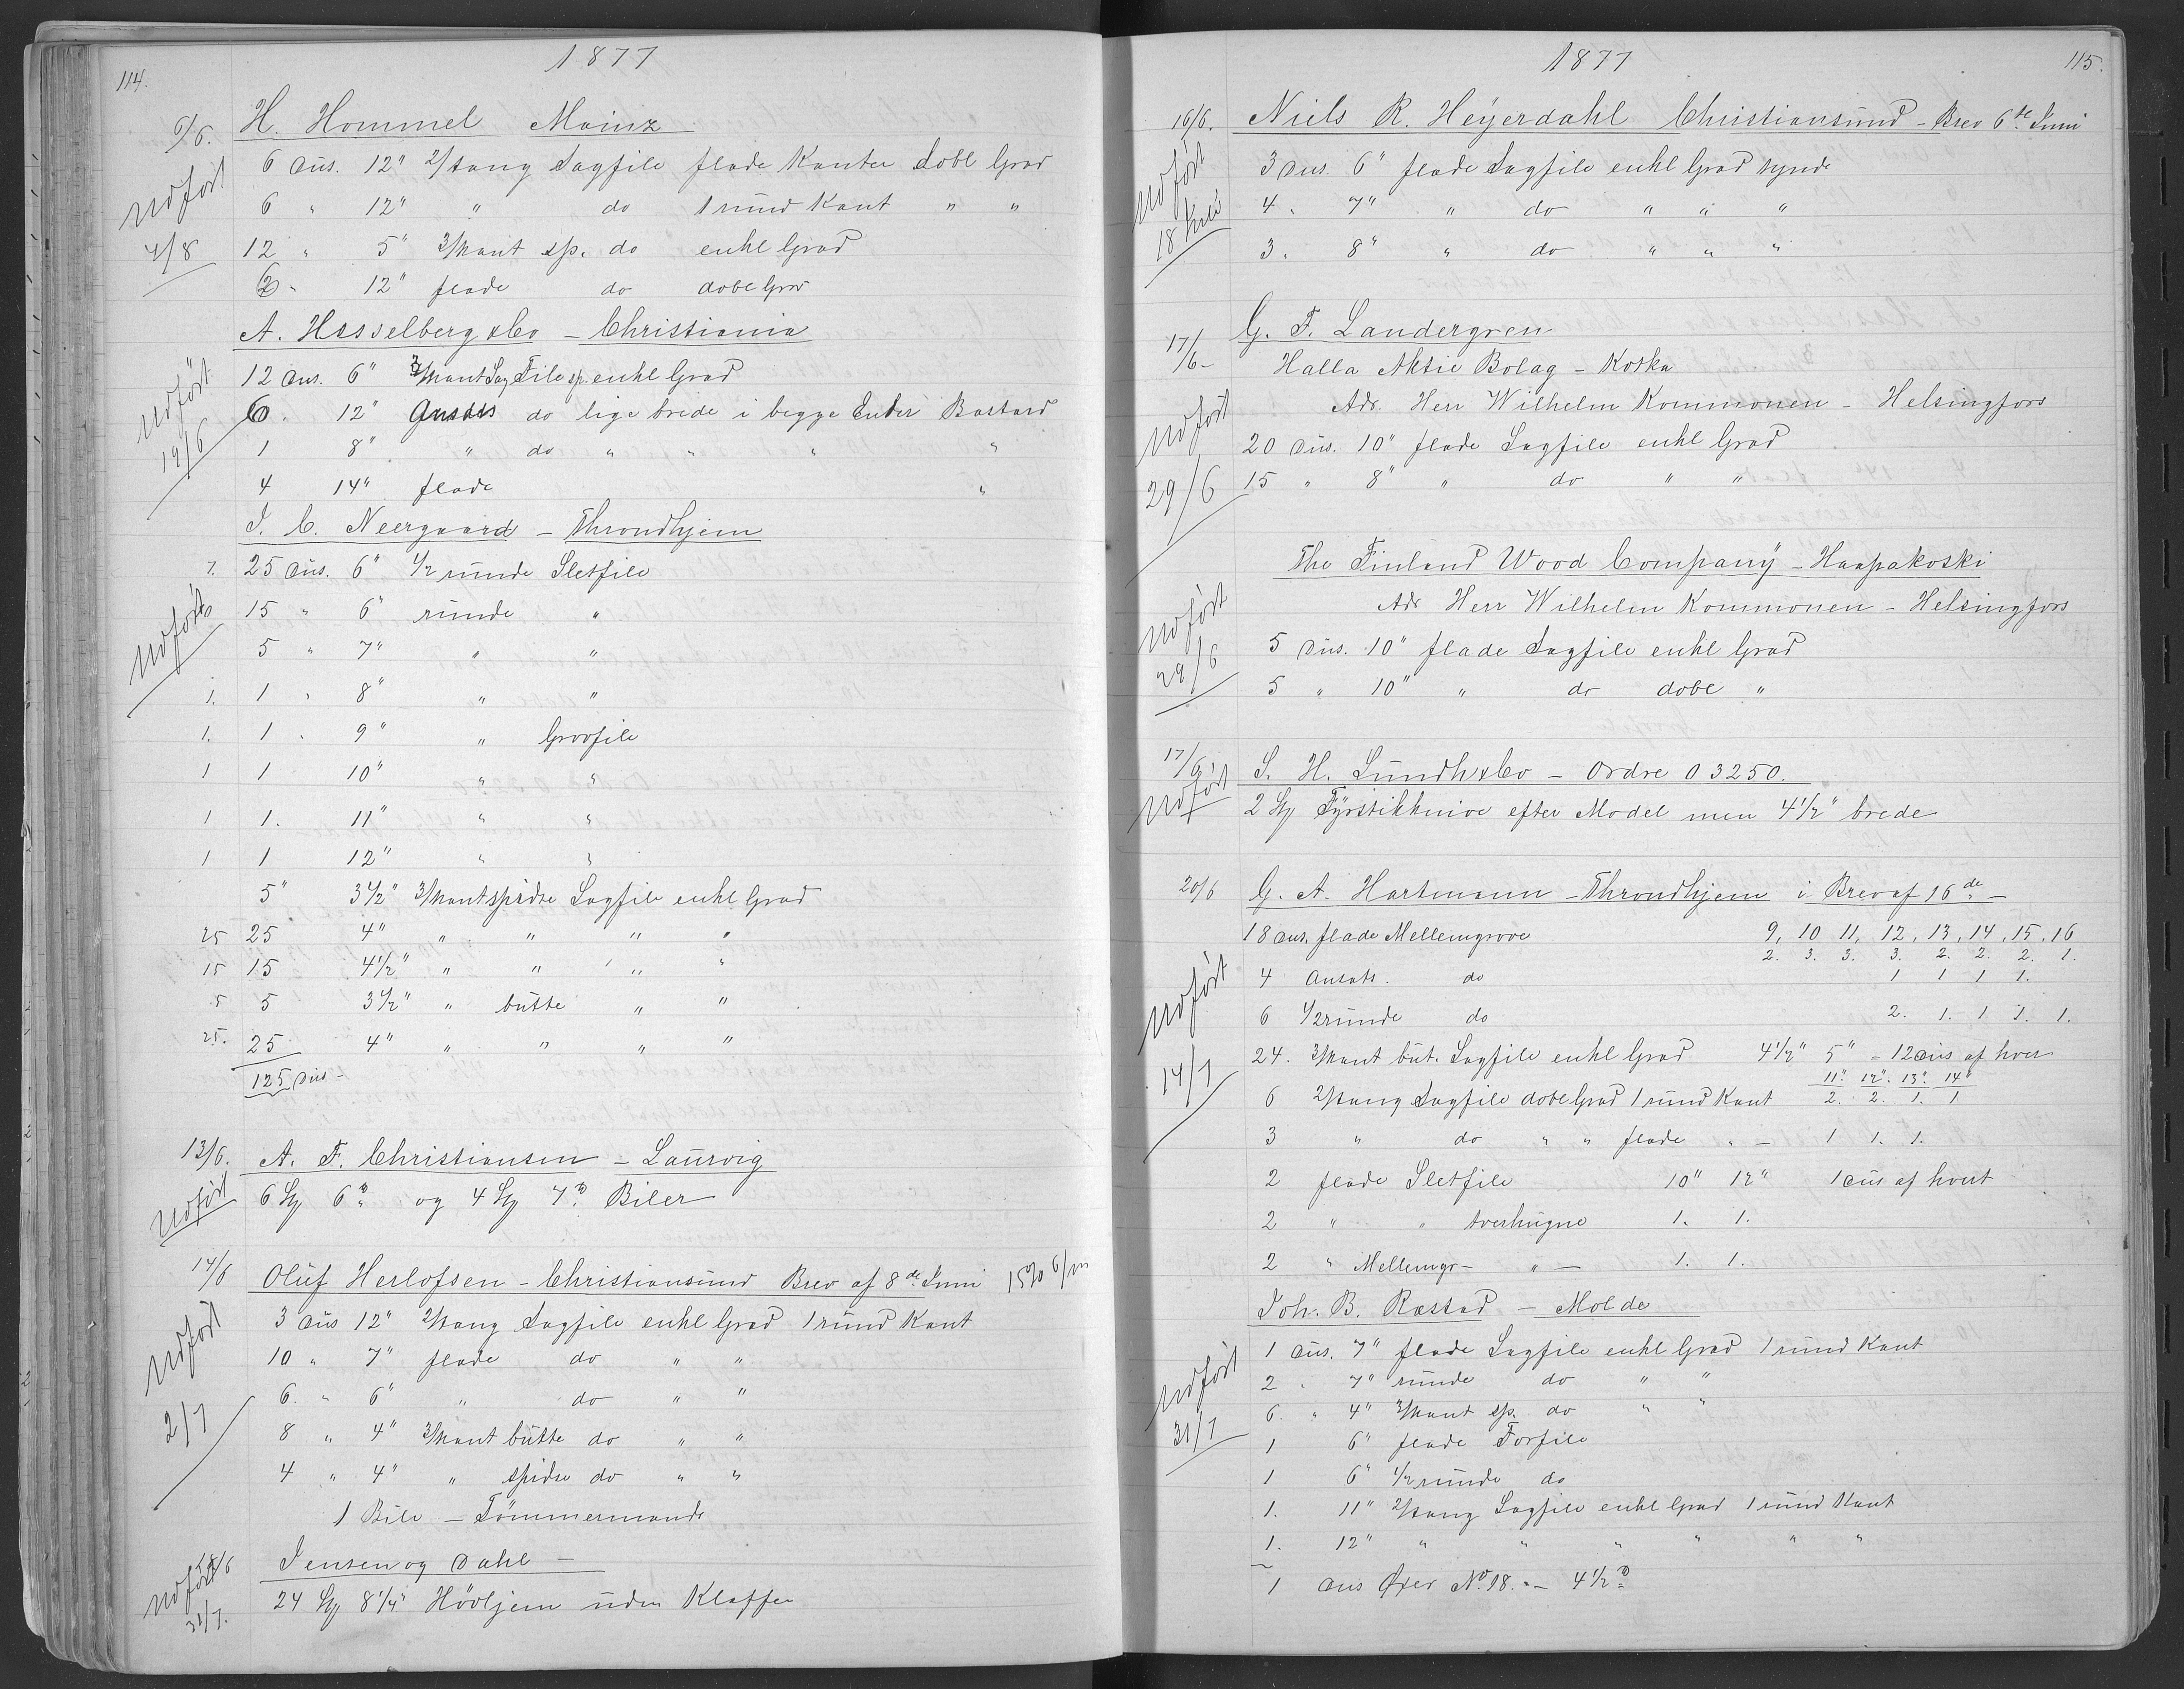 114.
1877
9/6. H. Hommel Mainz
6 Dus. 12" 2/tang Sagfile flade Kanter dobl Grad
Udført 6 " 12" " do 1 rund Kant " "
4/8 12 " 5" 3/kant sp. do enkl Grad
12" flade do dobl Grad
A. Hasselberg & Co - Christiania
12 Dus. 6" 3/kant Sag File sp. enkl Grad
Udført 6 " 12" Ansats do lige brede i begge Ender Bastard
19/6 1 8" " do " " " "
4 14" flade "
J. C. Neergaard - Throndhjem
7. 25 Dus. 6" 1/2 runde Sletfile
Udført 15 " 6" runde "
5 " 7" " "
1. 1 " 8" " "
1. 1 " 9" " Grovfile
1 1 10" " "
1 1. 11" " "
1 1 12" " "
5" 3 1/2" 3/kant spidse Sagfile enkl Grad
25 25 4" " " " "
15 15 4 1/2" " " " "
5 5 3 1/2" " butte " "
25. 25 4" " " " "
125 Dus -
13/6. A. F. Christiansen - Laurvig
Udført 6 Stk 6" og 4 Stk 7" Biler
14/6 Oluf Herlofsen - Christiansund Brev af 8de Juni 15% 6/m
3 Dus 12" 2/tang Sagfile enkl Grad 1 rund Kant
Udført 10 " 7" flade do " "
6. " 6" " do " "
2/7 8 " 4" 3/kant butte do " "
4 " 4" " spidse do " "
1 Bile - Tømmermands
18/6 Jensen og Dahl -
Udført 31/7. 24 Stk 8 1/4" Høvljern uden Klaffer
1877
115.
16/6. Niels R. Heyerdahl Christiansund - Brev 6te Juni
3 Dus. 6" flade Sagfile enkl Grad tynde
Udført 4 " 7" " do " " "
18 Juli 3 " 8" " do " " "
17/6- G. F. Landergren
Halla Aktie Bolag - Kotka
Adr. Herr Wilhelm Kommonen - Helsingfors
Udført 20 Dus. 10" flade Sagfile enkl Grad
29/6 15 " 8" " do " "
The Finland Wood Company - Haapakoski
Adr Herr Wilhelm Kommonen - Helsingfors
Udført 5 Dus. 10" flade Sagfile enkl Grad
29/6 5 " 10" " do dobl "
17/6. S. H. Lundh & Co - Ordre O 3250.
Udført 2 Stk Fyrstikknive efter Model men 4 1/2" brede
20/6 G. A. Hartmann - Throndhjem i Brev af 16de -
18 Dus. flade Mellemgrove 9, 10 11, 12, 13, 14, 15, 16
2. 3. 3. 3. 2. 2. 2. 1.
4 Ansats. do 1 1 1 1.
Udført 6 1/2 runde do 2. 1. 1 1. 1.
24. 3/kant but. Sagfile enkl Grad 4 1/2" 5" = 12 Dus af hver
14/7 11". 12". 13". 14"
6 2/tang Sagfile dobl Grad 1 rund Kant 2. 2. 1. 1
3 " do " " flade " - 1 1. 1.
2 flade Sletfile 10" 12" 1 Dus af hvert
2 " " tverhugne 1. 1.
2 " Mellemgr- " - 1. 1.
Joh. B. Rastad - Molde
1 Dus. 7" flade Sagfile enkl Grad 1 rund Kant
Udført 2 " 7" runde do " "
6. " 4" 3/kant sp. do " "
31/7 1 6" flade Forfile
1 6" 1/2 runde do
1. 11" 2/tang Sagfile enkl Grad 1 rund Kant
1. 12" " " " " " "
1 Dus Øxer No. 18. - 4 1/2